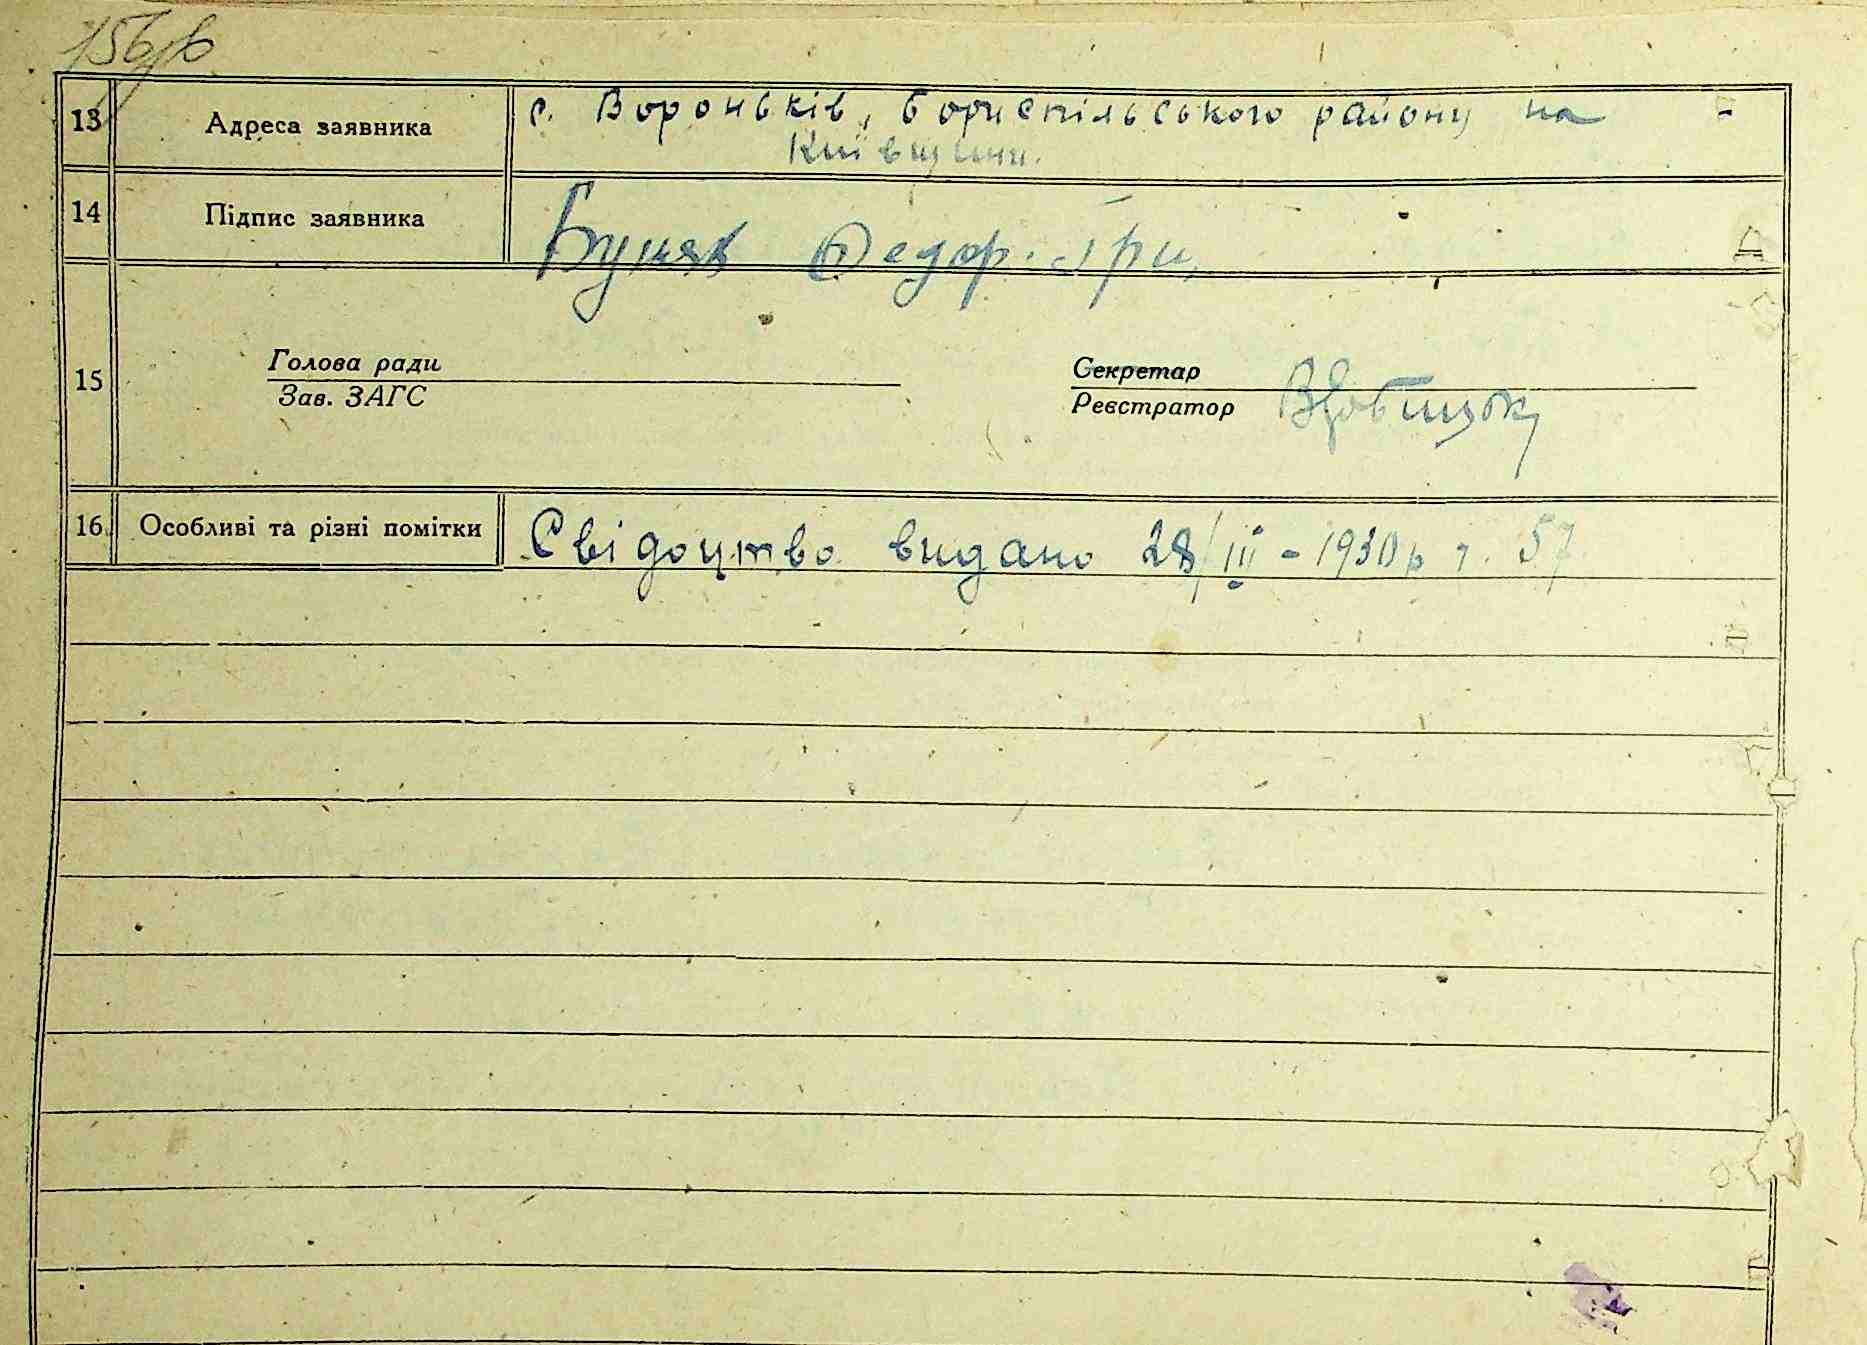 13 Адреса заявника с. Вороньків, Бориспільського району на
Київщині.
14 Підпис заявника Федор. Гри.
15 Голова ради Секретар
Зав. ЗАГС Реєстратор
16. Особливі та різні помітки Свідоцтво видано 28/III - 1930 р 57